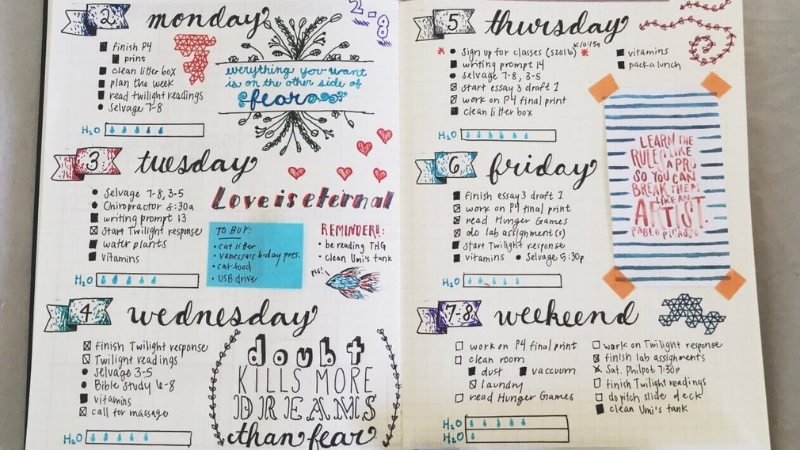 2 monday
finish P4
print
clean litter box
plan the week
read twilight readings
selvage 7-8
H₂O
2.8
everything you want
is on the other side of
fear
3 tuesday
Selvage 7-8, 3-5
Chiropractor 6:30a
writing prompt 13
Start Twilight response
water plants
vitamins
H₂O
Love is eternal
TO BUY:
cat litter
vanessa's b-day pres.
cat food
USB drive
REMINDER!:
be reading THG
clean Umi's tank
4 wednesday
finish Twilight response
Twilight readings
selvage 3-5
Bible Study 6-8
vitamins
call for massage
H₂O
doubt
KILLS MORE
DREAMS
than fear
5 thursday
sign up for classes (S2016)
writing prompt 14
selvage 7-8, 3-5
start essay 3 draft 1
work on P4 final print
clean litter box
vitamins
pack a lunch
H₂O
LEARN THE
RULES LIKE
A PRO
SO YOU CAN
BREAK THEM
LIKE AN
ARTIST.
PABLO PICASSO
6 friday
finish essay 3 draft 1
work on P4 final print
read Hunger Games
do lab assignment(s)
start Twilight response
vitamins • Selvage 5:30p
H₂O
7-8 weekend
work on P4 final print
clean room
dust vaccuom
laundry
read Hunger Games
work on Twilight response
finish lab assignments
Sat. Philpot 7:30p
finish Twilight readings
do pitch slide deck
clean Umi's tank
H₂O
H₂O